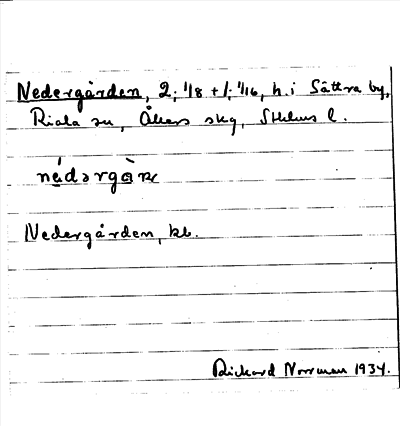 Nedergården, 2; 1/8 + 1; 1/16, h. i Sättra by,
Riala sn, Åkers skg, Sthlms l.
Nedergården, kb.
Rickard Norrman 1934.